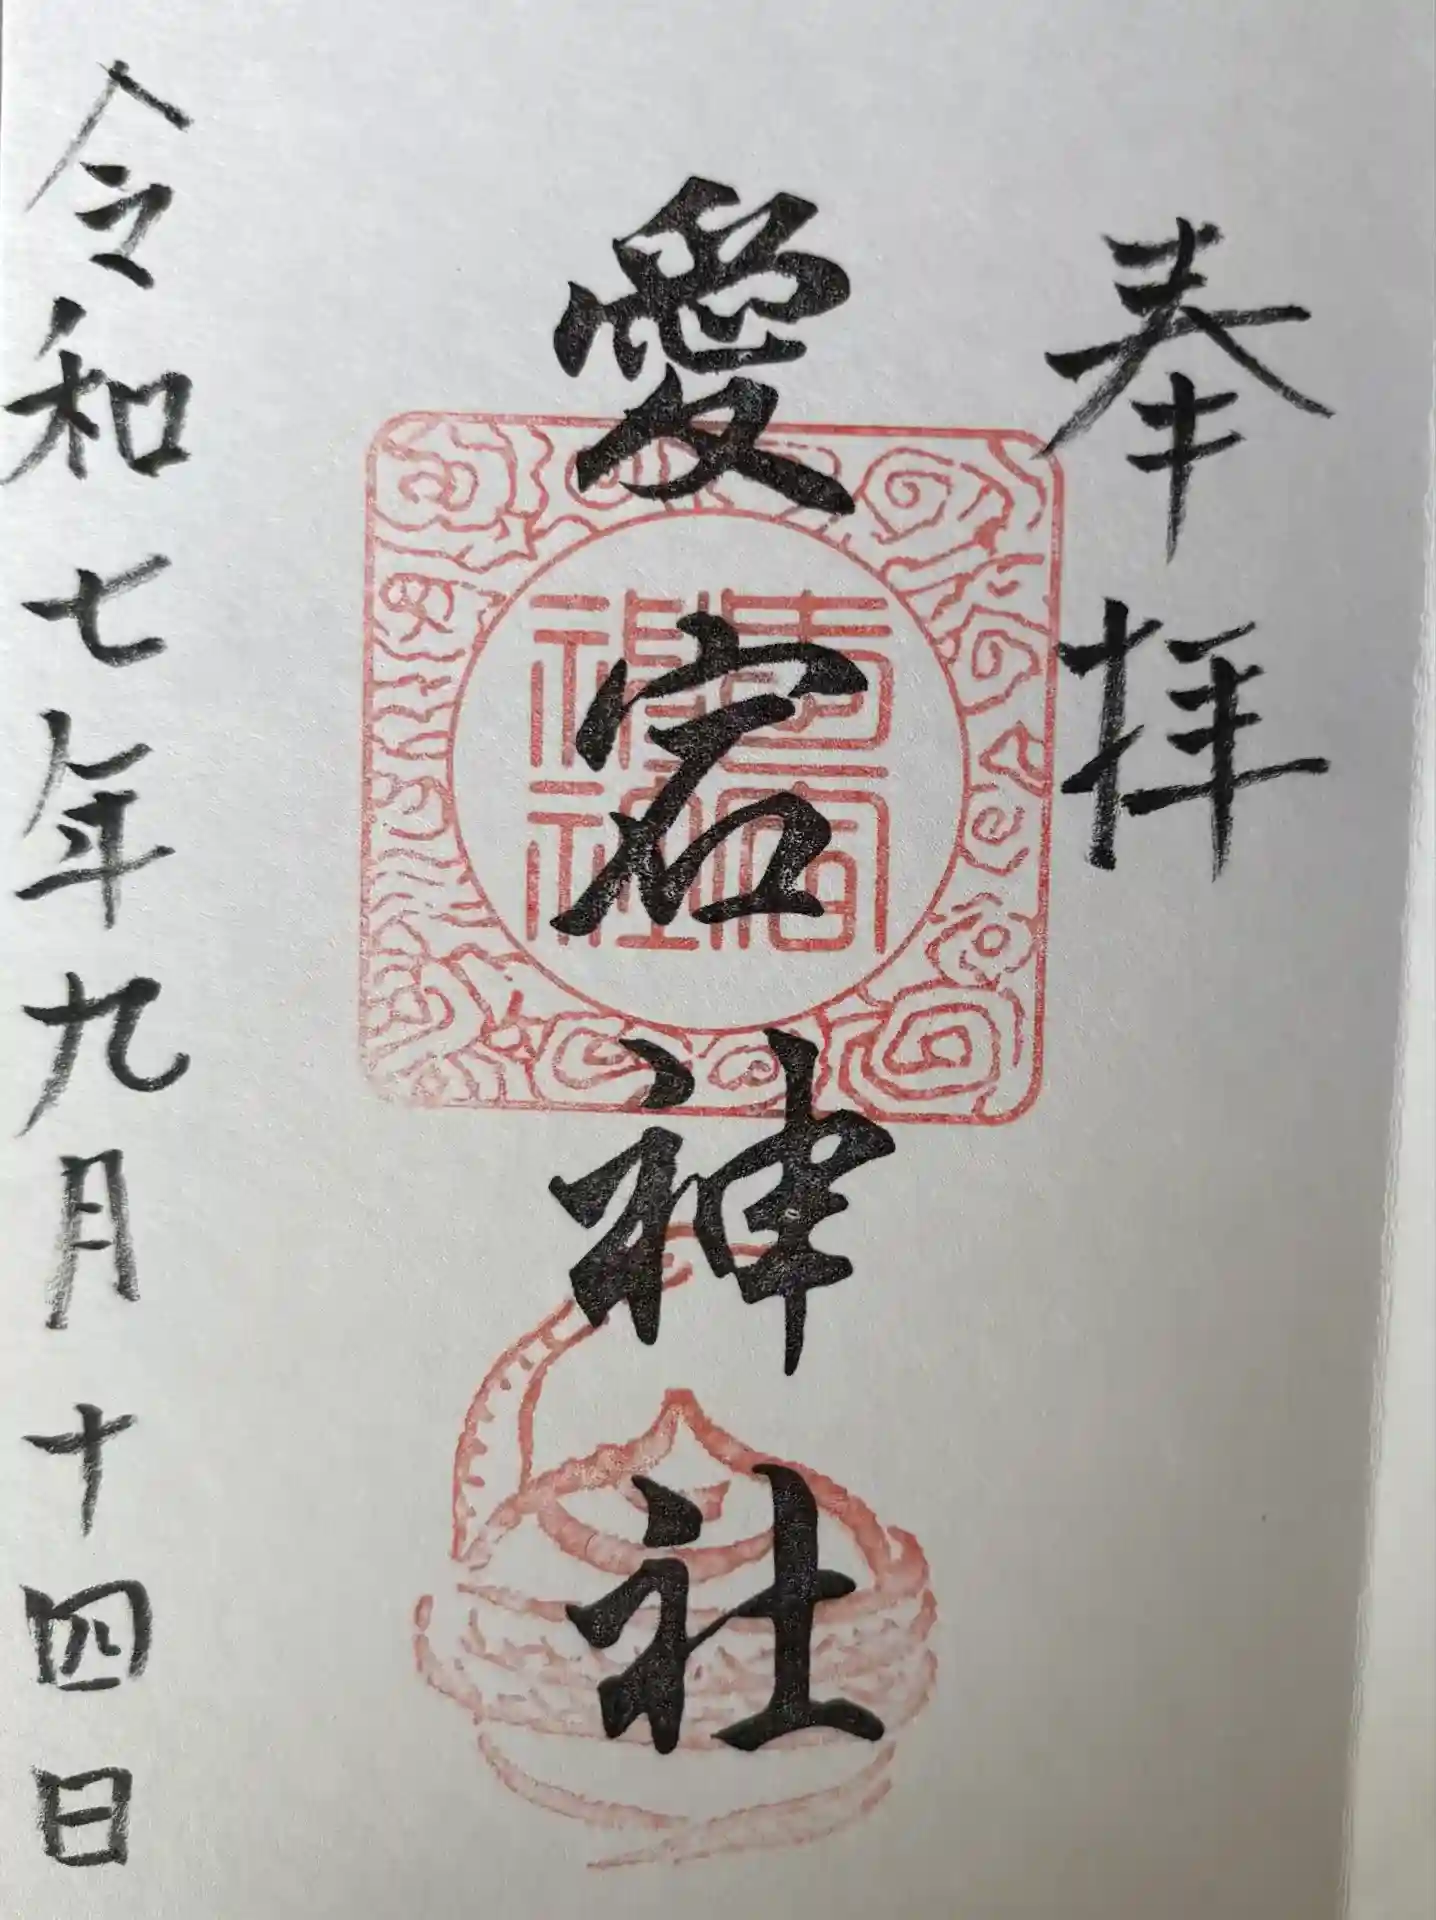 奉拝
愛宕神社
愛宕神社
令和七年九月十四日